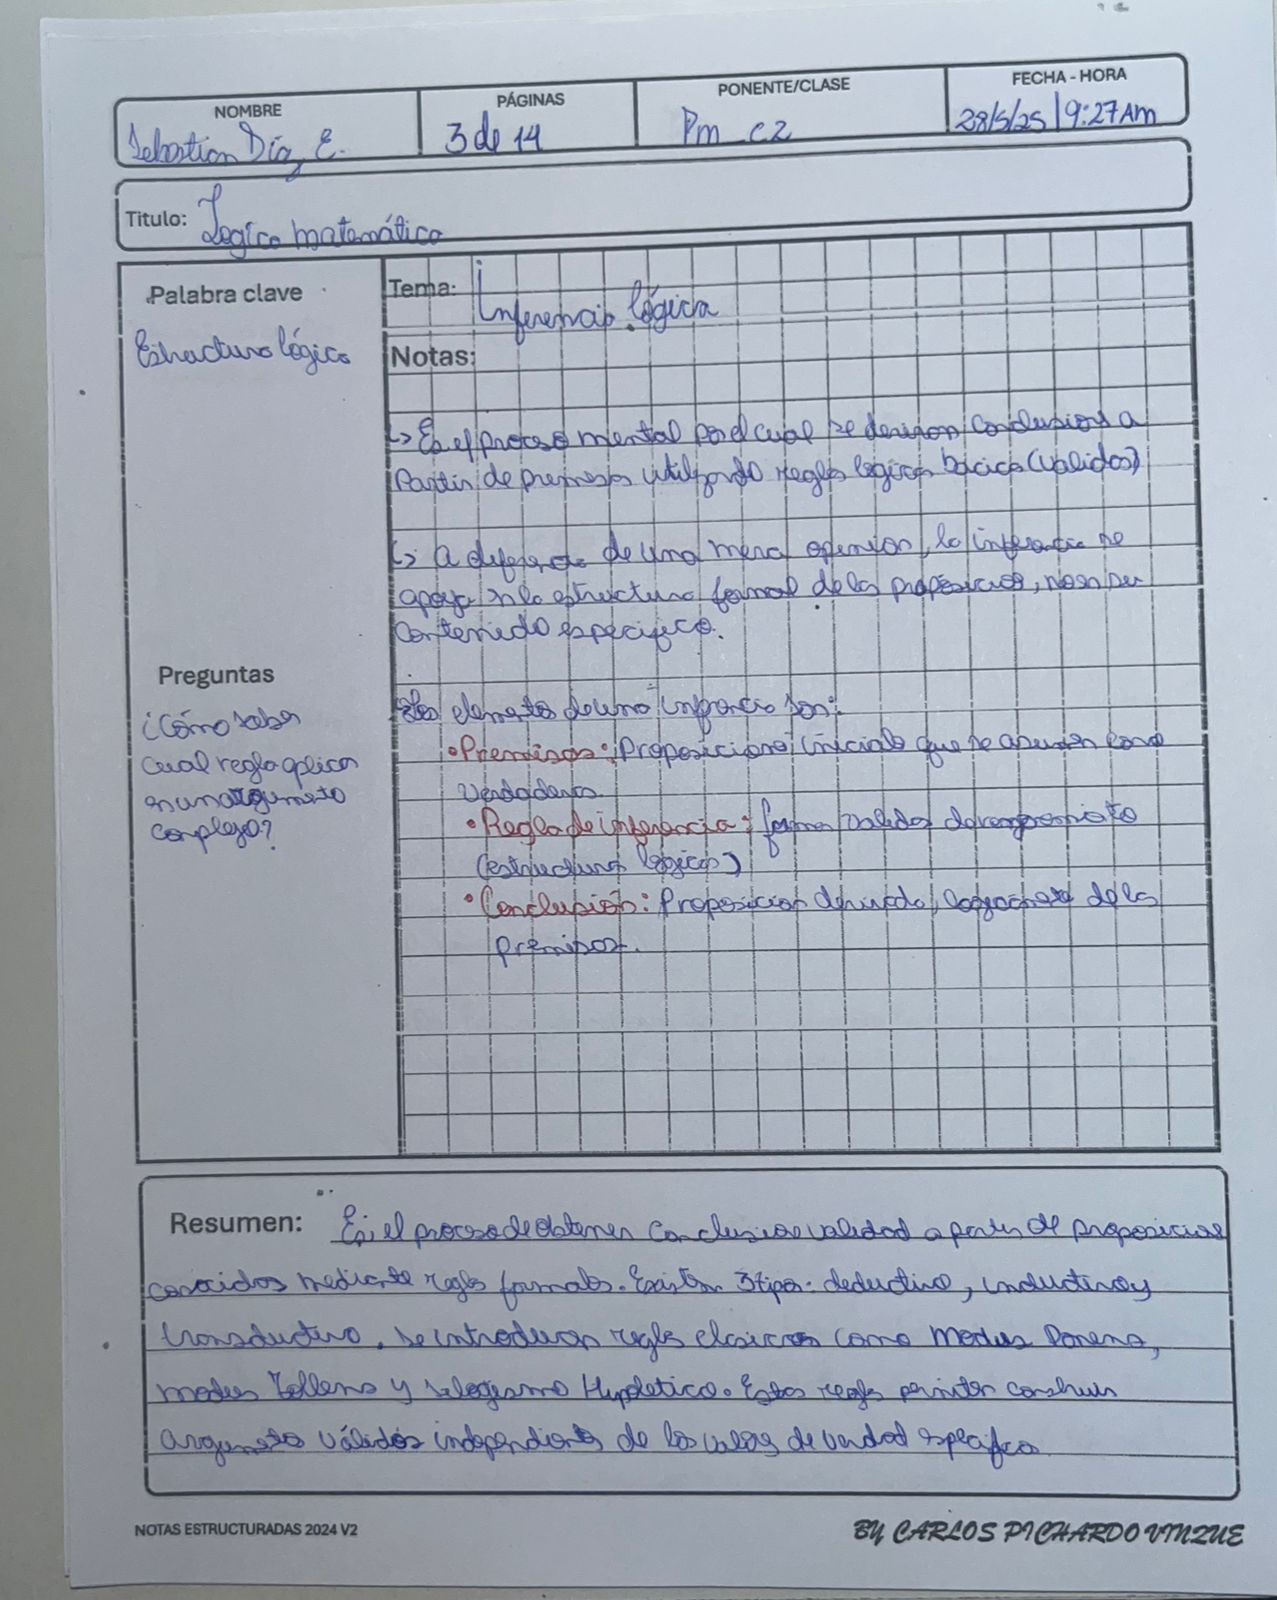 NOMBRE
Sebastian Díaz E.
PÁGINAS
3 de 14
PONENTE/CLASE
Pm_c2
FECHA - HORA
28/5/25 | 9:27 AM
Titulo: Logica matemática
Palabra clave
Estructura lógica
Tema: Inferencia lógica
Notas:
↳ Es el proceso mental por el cual se derivan conclusions a
Partir de premisas utilizando reglas logicas bácica (validas)
↳ A diferencia de una mera opinion, la inferencia se
apoya en la estructura formal de las proposicios, no en su
contenido especifico.
Preguntas
¿Cómo saber
cual regla aplica
en un argumento
complejo?
Los elementos de una inferencia son:
• Premisas: Proposiciones iniciales que se asumen como
verdaderas.
• Regla de inferencia: formas validas de razonamiento
(estructura lógica)
• Conclusión: Proposicion derivada, de las
premisas.
Resumen: Es el proceso de obtener conclusiones validad a partir de proposicios
conocidos mediante reglas formales. Existen 3 tipos: deductivo, inductivo y
transductivo. Se introducen reglas clasicas como Modus Ponens,
modus Tollens y silogismo Hipotetico. Estas reglas permiten construir
argumentos válidos independiente de los valores de verdad especifico
NOTAS ESTRUCTURADAS 2024 V2
BY CARLOS PICHARDO VINZUE